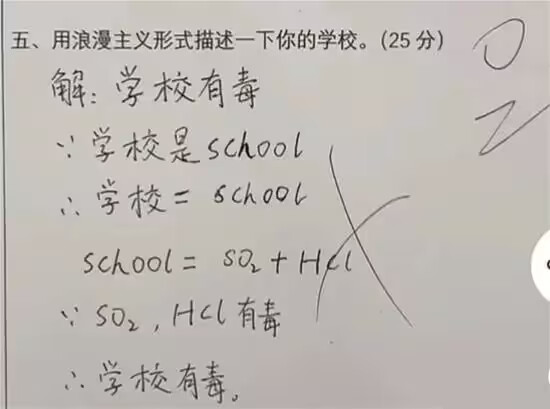 五、用浪漫主义形式描述一下你的学校。(25 分)
解: 学校有毒
∵ 学校是 school
∴ 学校 = school
school = SO₂ + HCl
∵ SO₂, HCl 有毒
∴ 学校有毒。